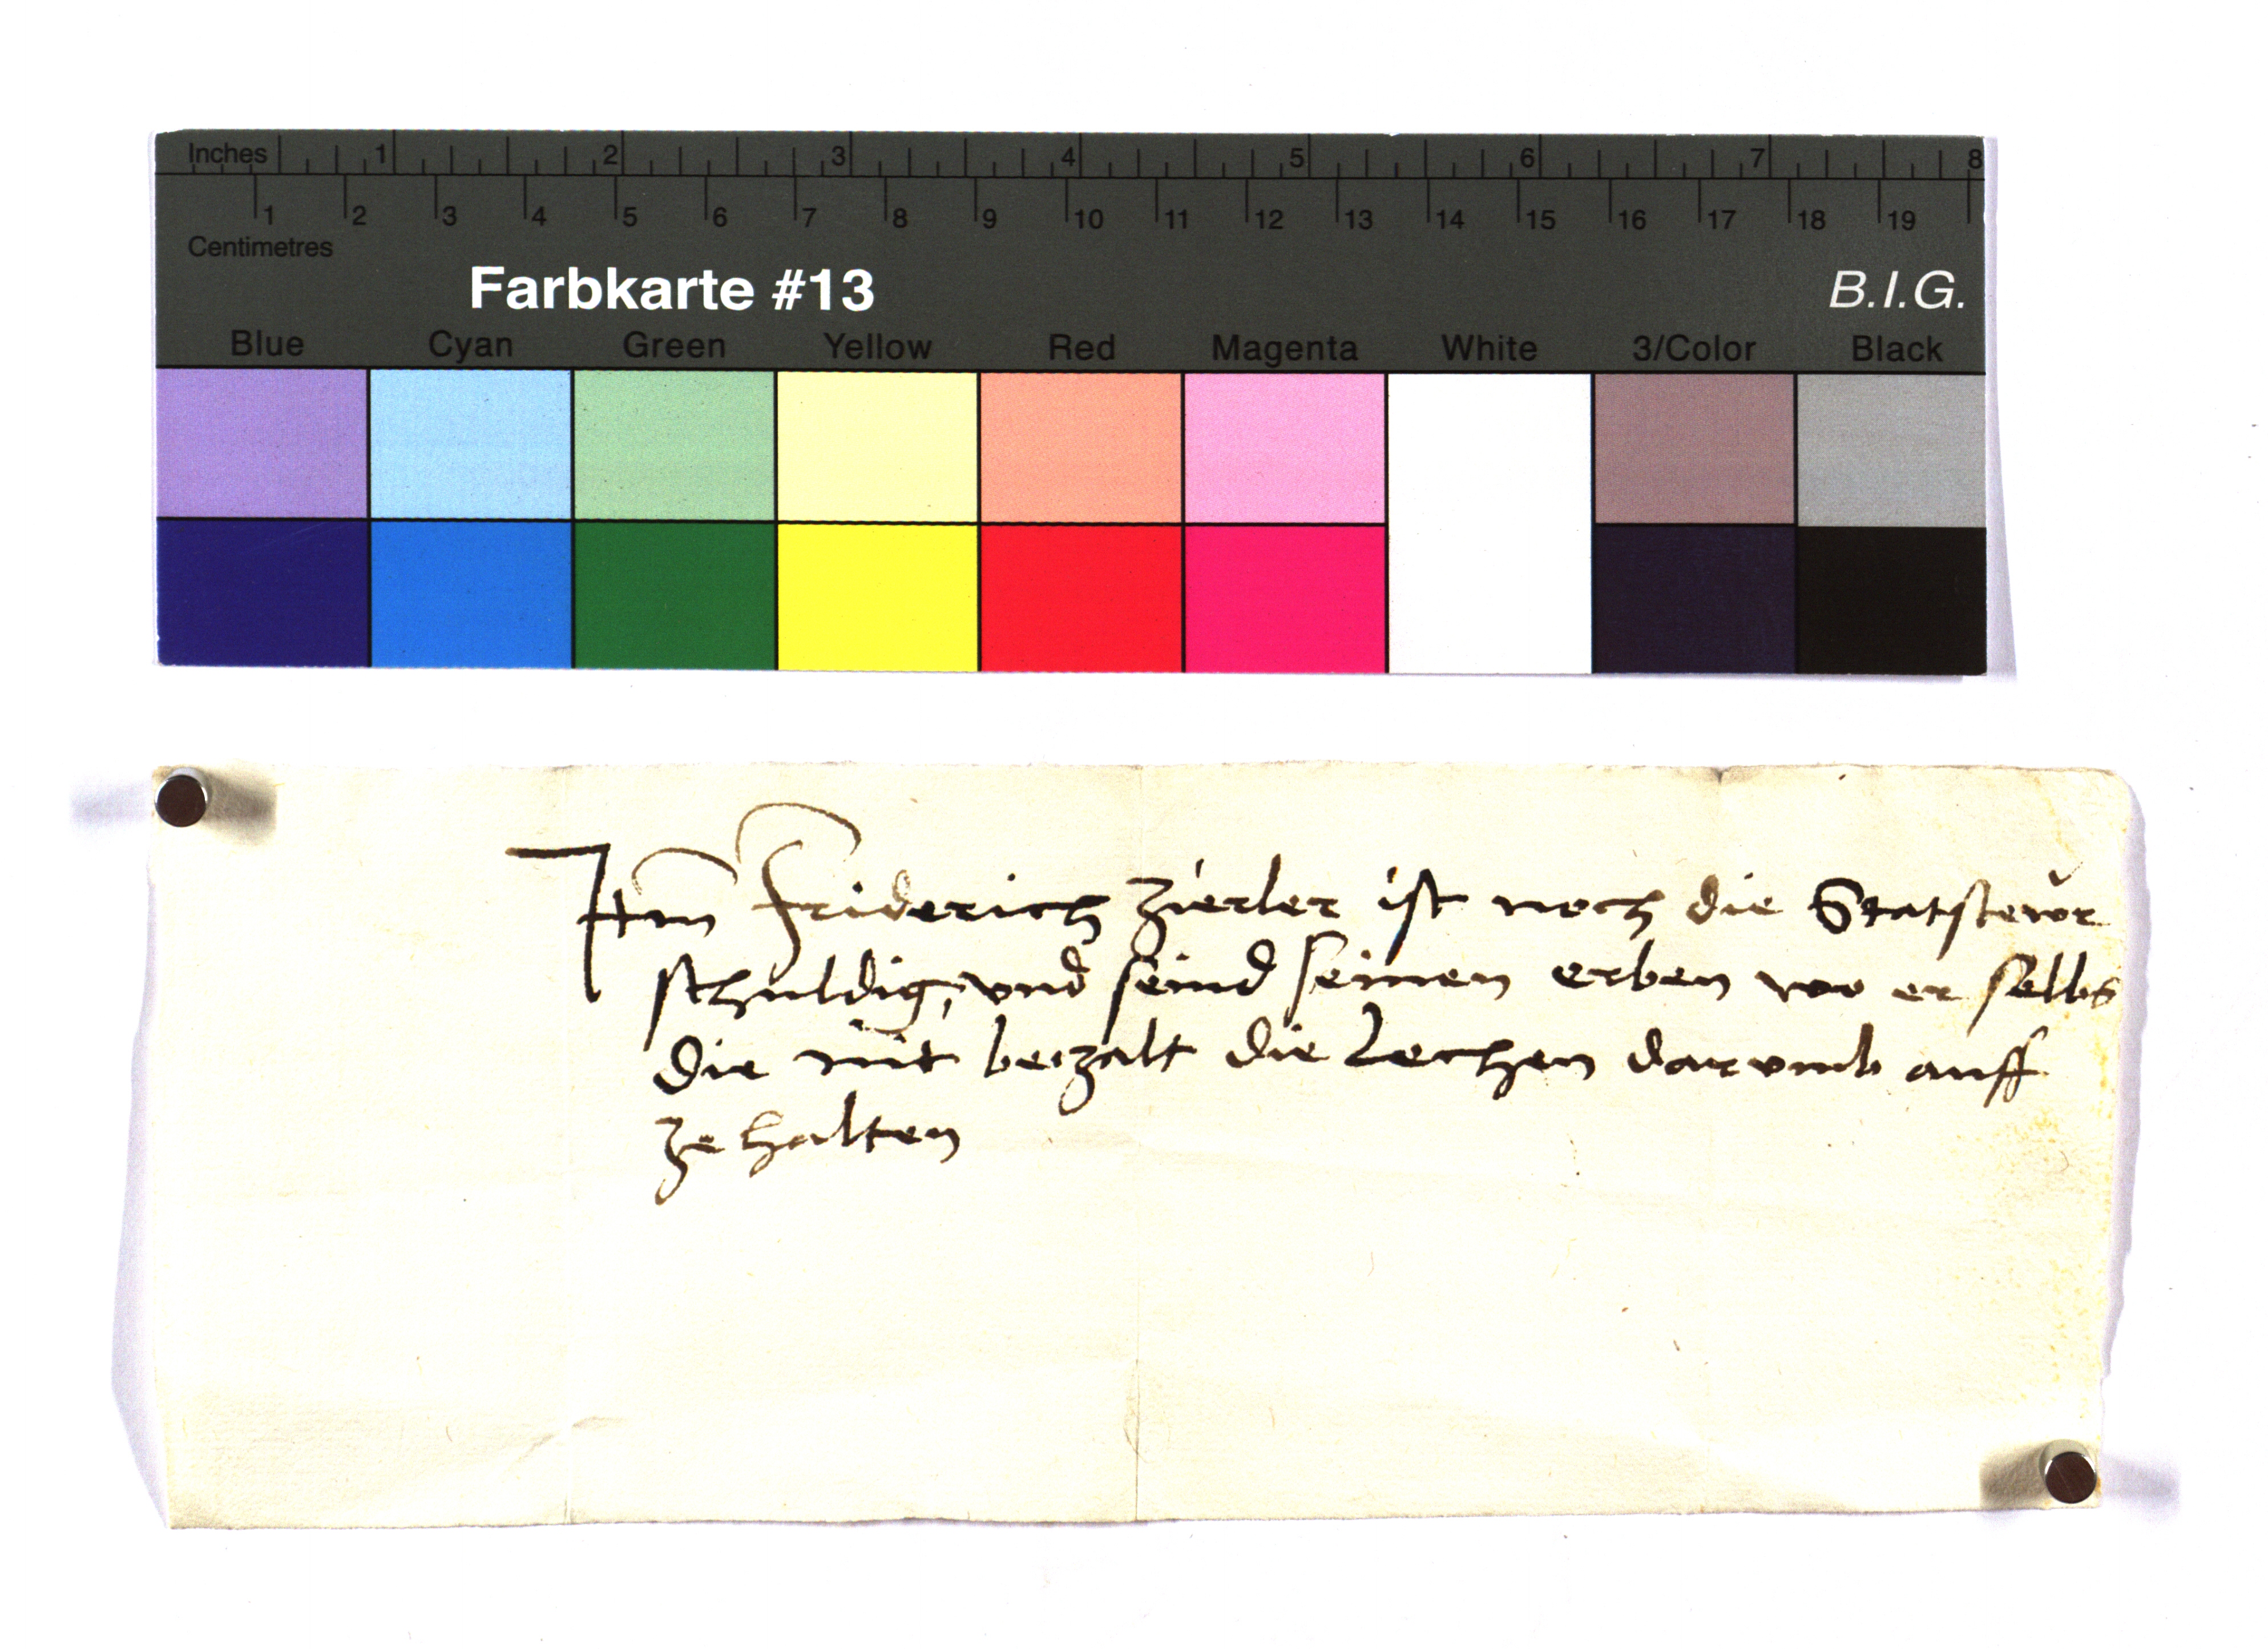 Inches 1 2 3 4 5 6 7 8
1 2 3 4 5 6 7 8 9 10 11 12 13 14 15 16 17 18 19
Centimetres
Farbkarte #13 B.I.G.
Blue Cyan Green Yellow Red Magenta White 3/Color Black
Itm Friderich Zierler ist noch die Statstewr
schuldig, vnd seind seinen erben wo er selbs
die nit bezalt die Lechen darvmb auff
ze halten